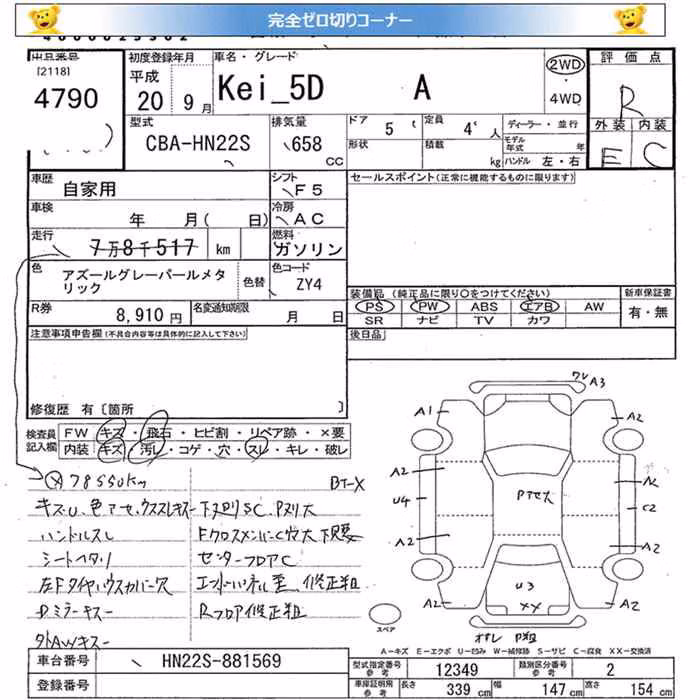 完全ゼロ切りコーナー
出品番号
[2118]
4790
初度登録年月
平成
20 9月
車名・グレード
Kei_5D A
2WD
・
4WD
評価点
R
外装 内装
E C
型式
CBA-HN22S
排気量
658
CC
ドア 5
定員 4人
ディーラー・並行
形状
積載 kg
モデル年式 年
ハンドル 左・右
車歴
自家用
シフト
F5
セールスポイント(正常に機能するものに限ります)
車検
年 月( 日)
冷房
AC
走行
7万8千517 km
燃料
ガソリン
色
アズールグレーパールメタリック
色替
色コード
ZY4
装備品 (純正品に限り○をつけてください)
PS PW ABS エアB AW
SR ナビ TV カワ
新車保証書
有・無
R券
8,910円
名変通知期限
月 日
後日品
注意事項申告欄(不具合内容等は具体的に記入して下さい)
修復歴 有〔箇所 〕
検査員記入欄
FW キズ・飛石・ヒビ割・リペア跡・×要
内装 キズ・汚レ・コゲ・穴・スレ・キレ・破レ
78550km
BT-X
キズU、色アセ、ウススレキズー下スリSC、Pスリ大
ハンドルスレ
シートヘタリ
センターフロアC
左Fタイヤハウスカバー欠
エンドパネル歪、修正粗
Dミラーキズー
Rフロア修正粗
外AWキズー
ワレ A3
A1
A2
A2
A2
U4
C2
A2
A2
A2
A2
U3
XX
P粗
スペア
A-キズ E-エクボ U-凹み W-補修跡 S-サビ C-腐食 XX-交換済
車台番号
HN22S-881569
登録番号
型式指定番号参考
12349
類別区分番号参考
2
車庫証明用参考
長さ 339cm
幅 147cm
高さ 154cm